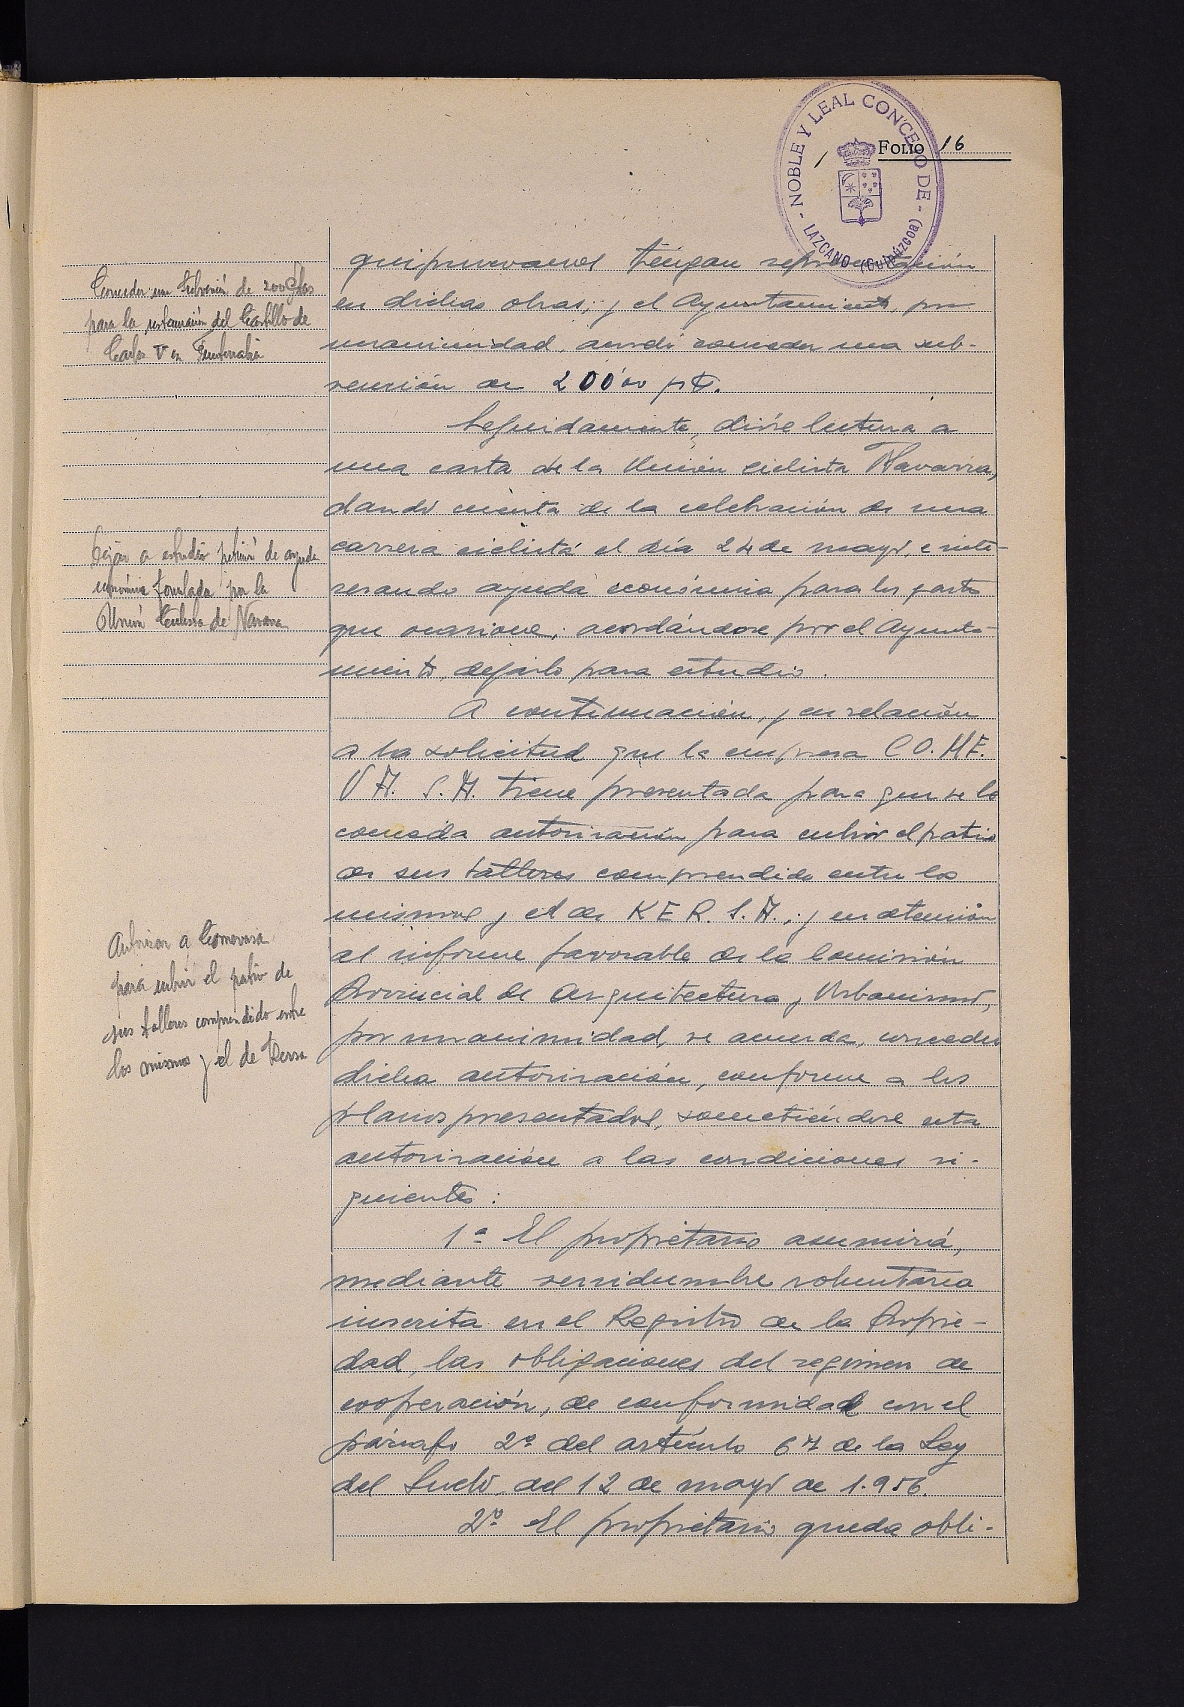 NOBLE Y LEAL CONCEJO DE
LAZCANO (Guipúzcoa)
FOLIO 16
Conceder una subvención de 200 Ptas
para la restauración del Castillo de
Carlos V en Fuenterrabía
guipuzcoanos tengan representación
en dichas obras; y el Ayuntamiento, por
unanimidad, acordó conceder una sub-
vención de 200'00 pts.
Seguidamente, dióse lectura a
una carta de la Unión ciclista Navarra,
dando cuenta de la celebración de una
carrera ciclista el día 24 de mayo, e inte-
resando ayuda económica para los gastos
que ocasione; acordándose por el Ayunta-
miento, dejarlo para estudio.
Dejar a estudio petición de ayuda
económica formulada por la
Unión Ciclista de Navarra
A continuación, y en relación
a la solicitud que la empresa CO.ME.
VA. S.A. tiene presentada para que se le
conceda autorización para cubrir el patio
de sus talleres comprendido entre los
mismos y el de KER. S.A., y en atención
al informe favorable de la Comisión
Provincial de Arquitectura y Urbanismo,
por unanimidad, se acuerda, conceder
dicha autorización, conforme a los
planos presentados, sometiéndose esta
autorización a las condiciones si-
guientes:
Autorizar a Comevasa
para cubrir el patio de
sus talleres comprendido entre
los mismos y el de Kersa
1ª El propietario asumirá,
mediante servidumbre voluntaria
inscrita en el Registro de la Propie-
dad, las obligaciones del regimen de
cooperación, de conformidad con el
párrafo 2º del artículo 67 de la Ley
del Suelo, del 12 de mayo de 1.956.
2º El propietario queda obli-